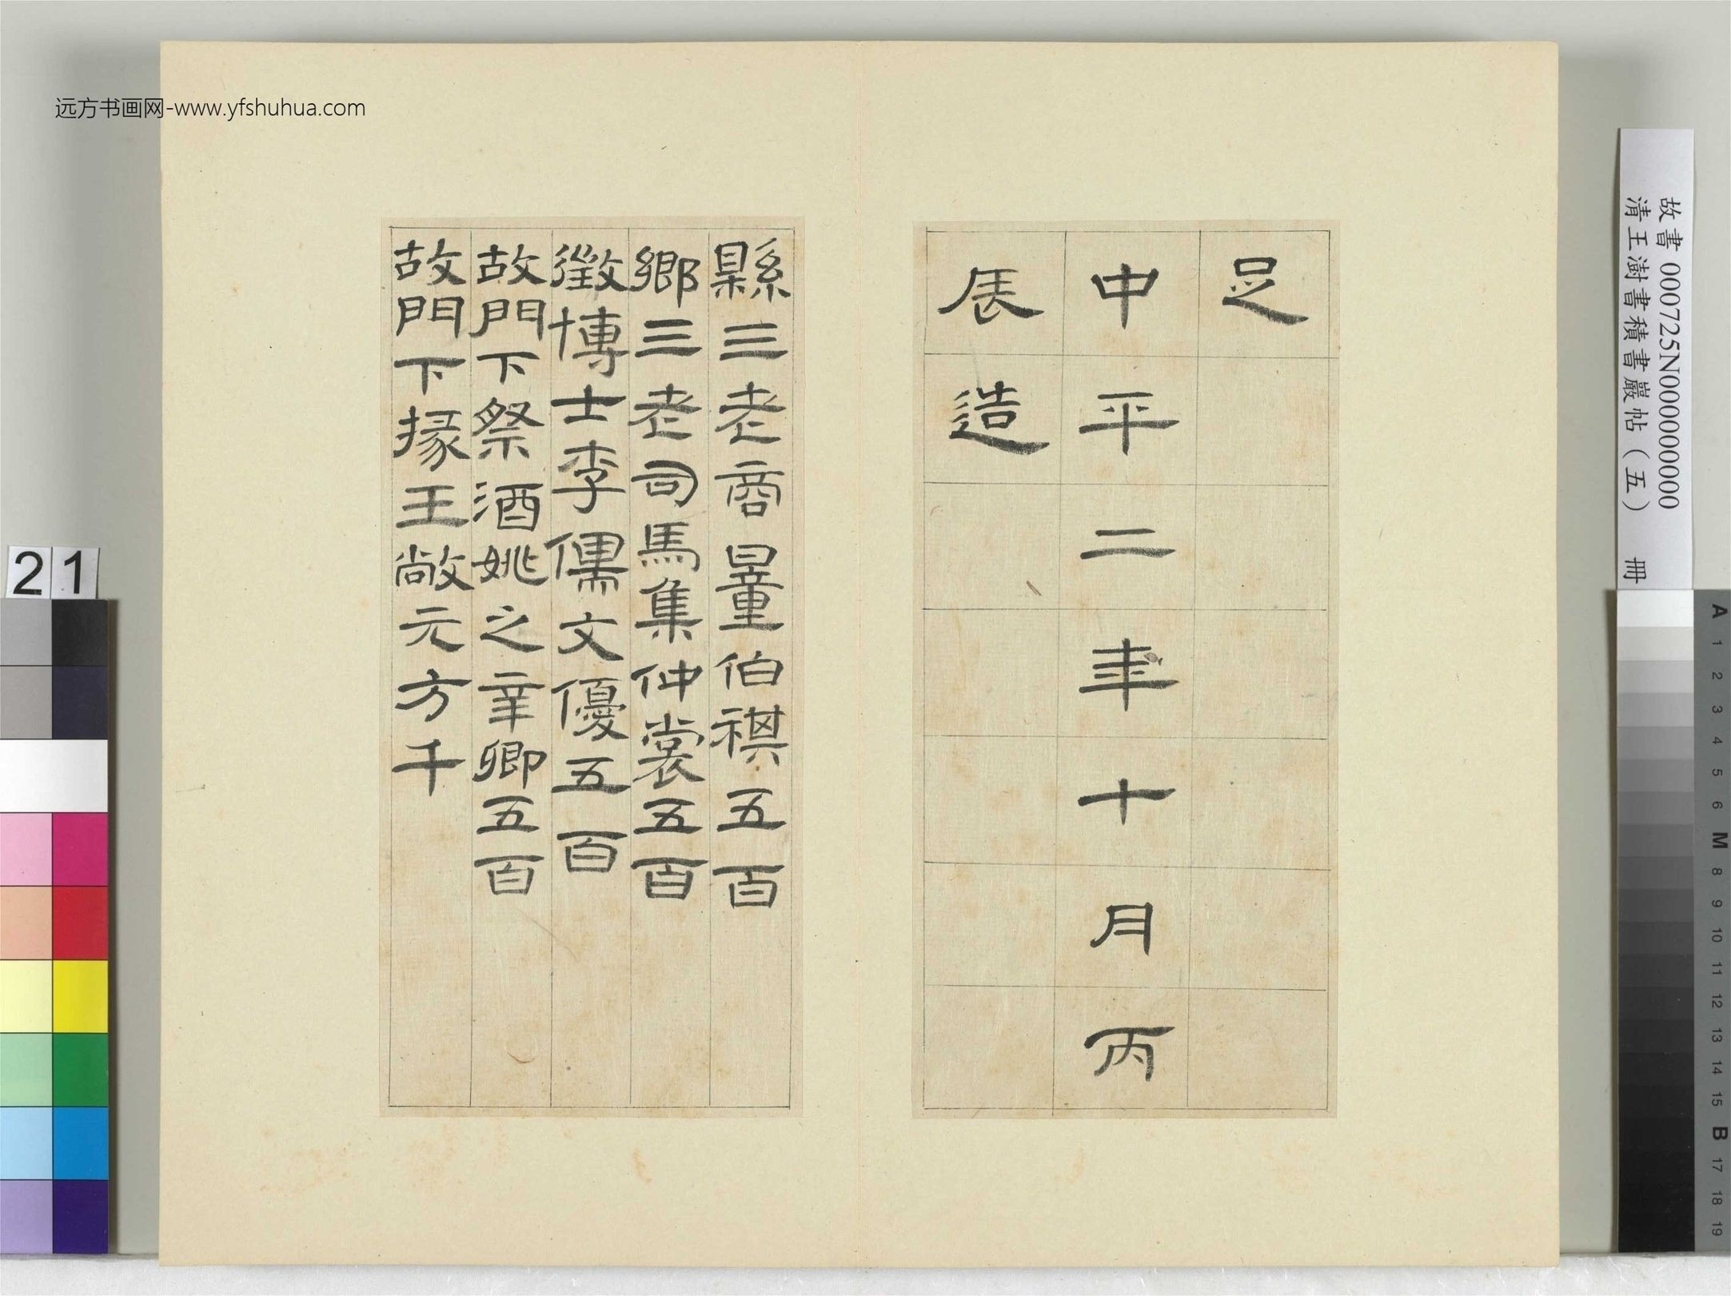 远方书画网-www.yfshuhua.com
足
中平二年十月丙
辰造
縣三老商量伯祺五百
鄉三老司馬集仲裳五百
徵博士李儒文優五百
故門下祭酒姚之辛卿五百
故門下掾王敞元方千
故書 000725N000000000
清王澍書積書巖帖（五） 冊
21
A
1
2
3
4
5
6
M
8
9
10
11
12
13
14
15
B
17
18
19